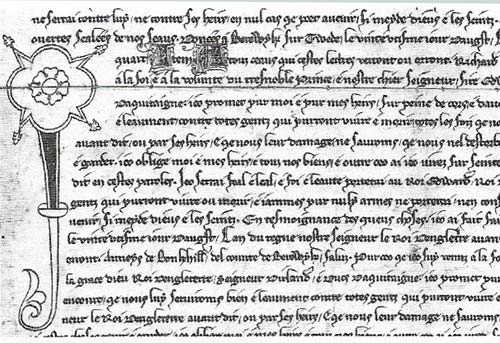 ne serrai contre luy, ne contre ses heirs, en nul cas qe peet avenir. Si meyde dieus e les seintz.
overtes sealees de nos seaus. Donees Berewyk sur Twede, le vintutisme iour Daugst, l
quart tous ceaus qui cestes lettres verront ou orront. Richard
a la foi, e a la volunte du tresnoble Prince, e nostre chier Seigneur, Sire
Daquitaigne, ico promet pur moi e pur mes heirs, sur peine de corps e davoi
e leaument, contre totes gentz qui purront vivre e morir, totes les foiz qe no
avant dit, ou par ses heirs, E qe nous leur damage ne sauroms, qe nous nel desterbe
e garder. ico oblige moi e mes heirs, e tous nos biens, e outre ceo ai ico iurez sur seinte
dit en cestes paroles. Ico serrai feal e leal, e foi e leaute porterai au Roi Edward, Roi
gentz qui purront vivre ou morir, e iammes pur nuly armes ne porterai, ne en cons
venir, Si meyde dieus e les seintz. En tesmoignance des queus choses, ico ai fait fai
le vintutisme iour Daugst, Lan du regne nostre seigneur le Roi Dengleterre avant
orront. de del counte de Berewyk, saluz. Pur ceo qe ico suy venuz a la fo
la grace dieu Roi Dengleterre, Seigneur Dirland, e Ducs Daquitaigne, ico promet pur
encontre, qe nous luy serviroms bien e leaument contre totes gentz qui purront vivre e
neur le Roi Dengleterre avant dit, ou par ses heirs, E qe nous leur damage ne sauroms,